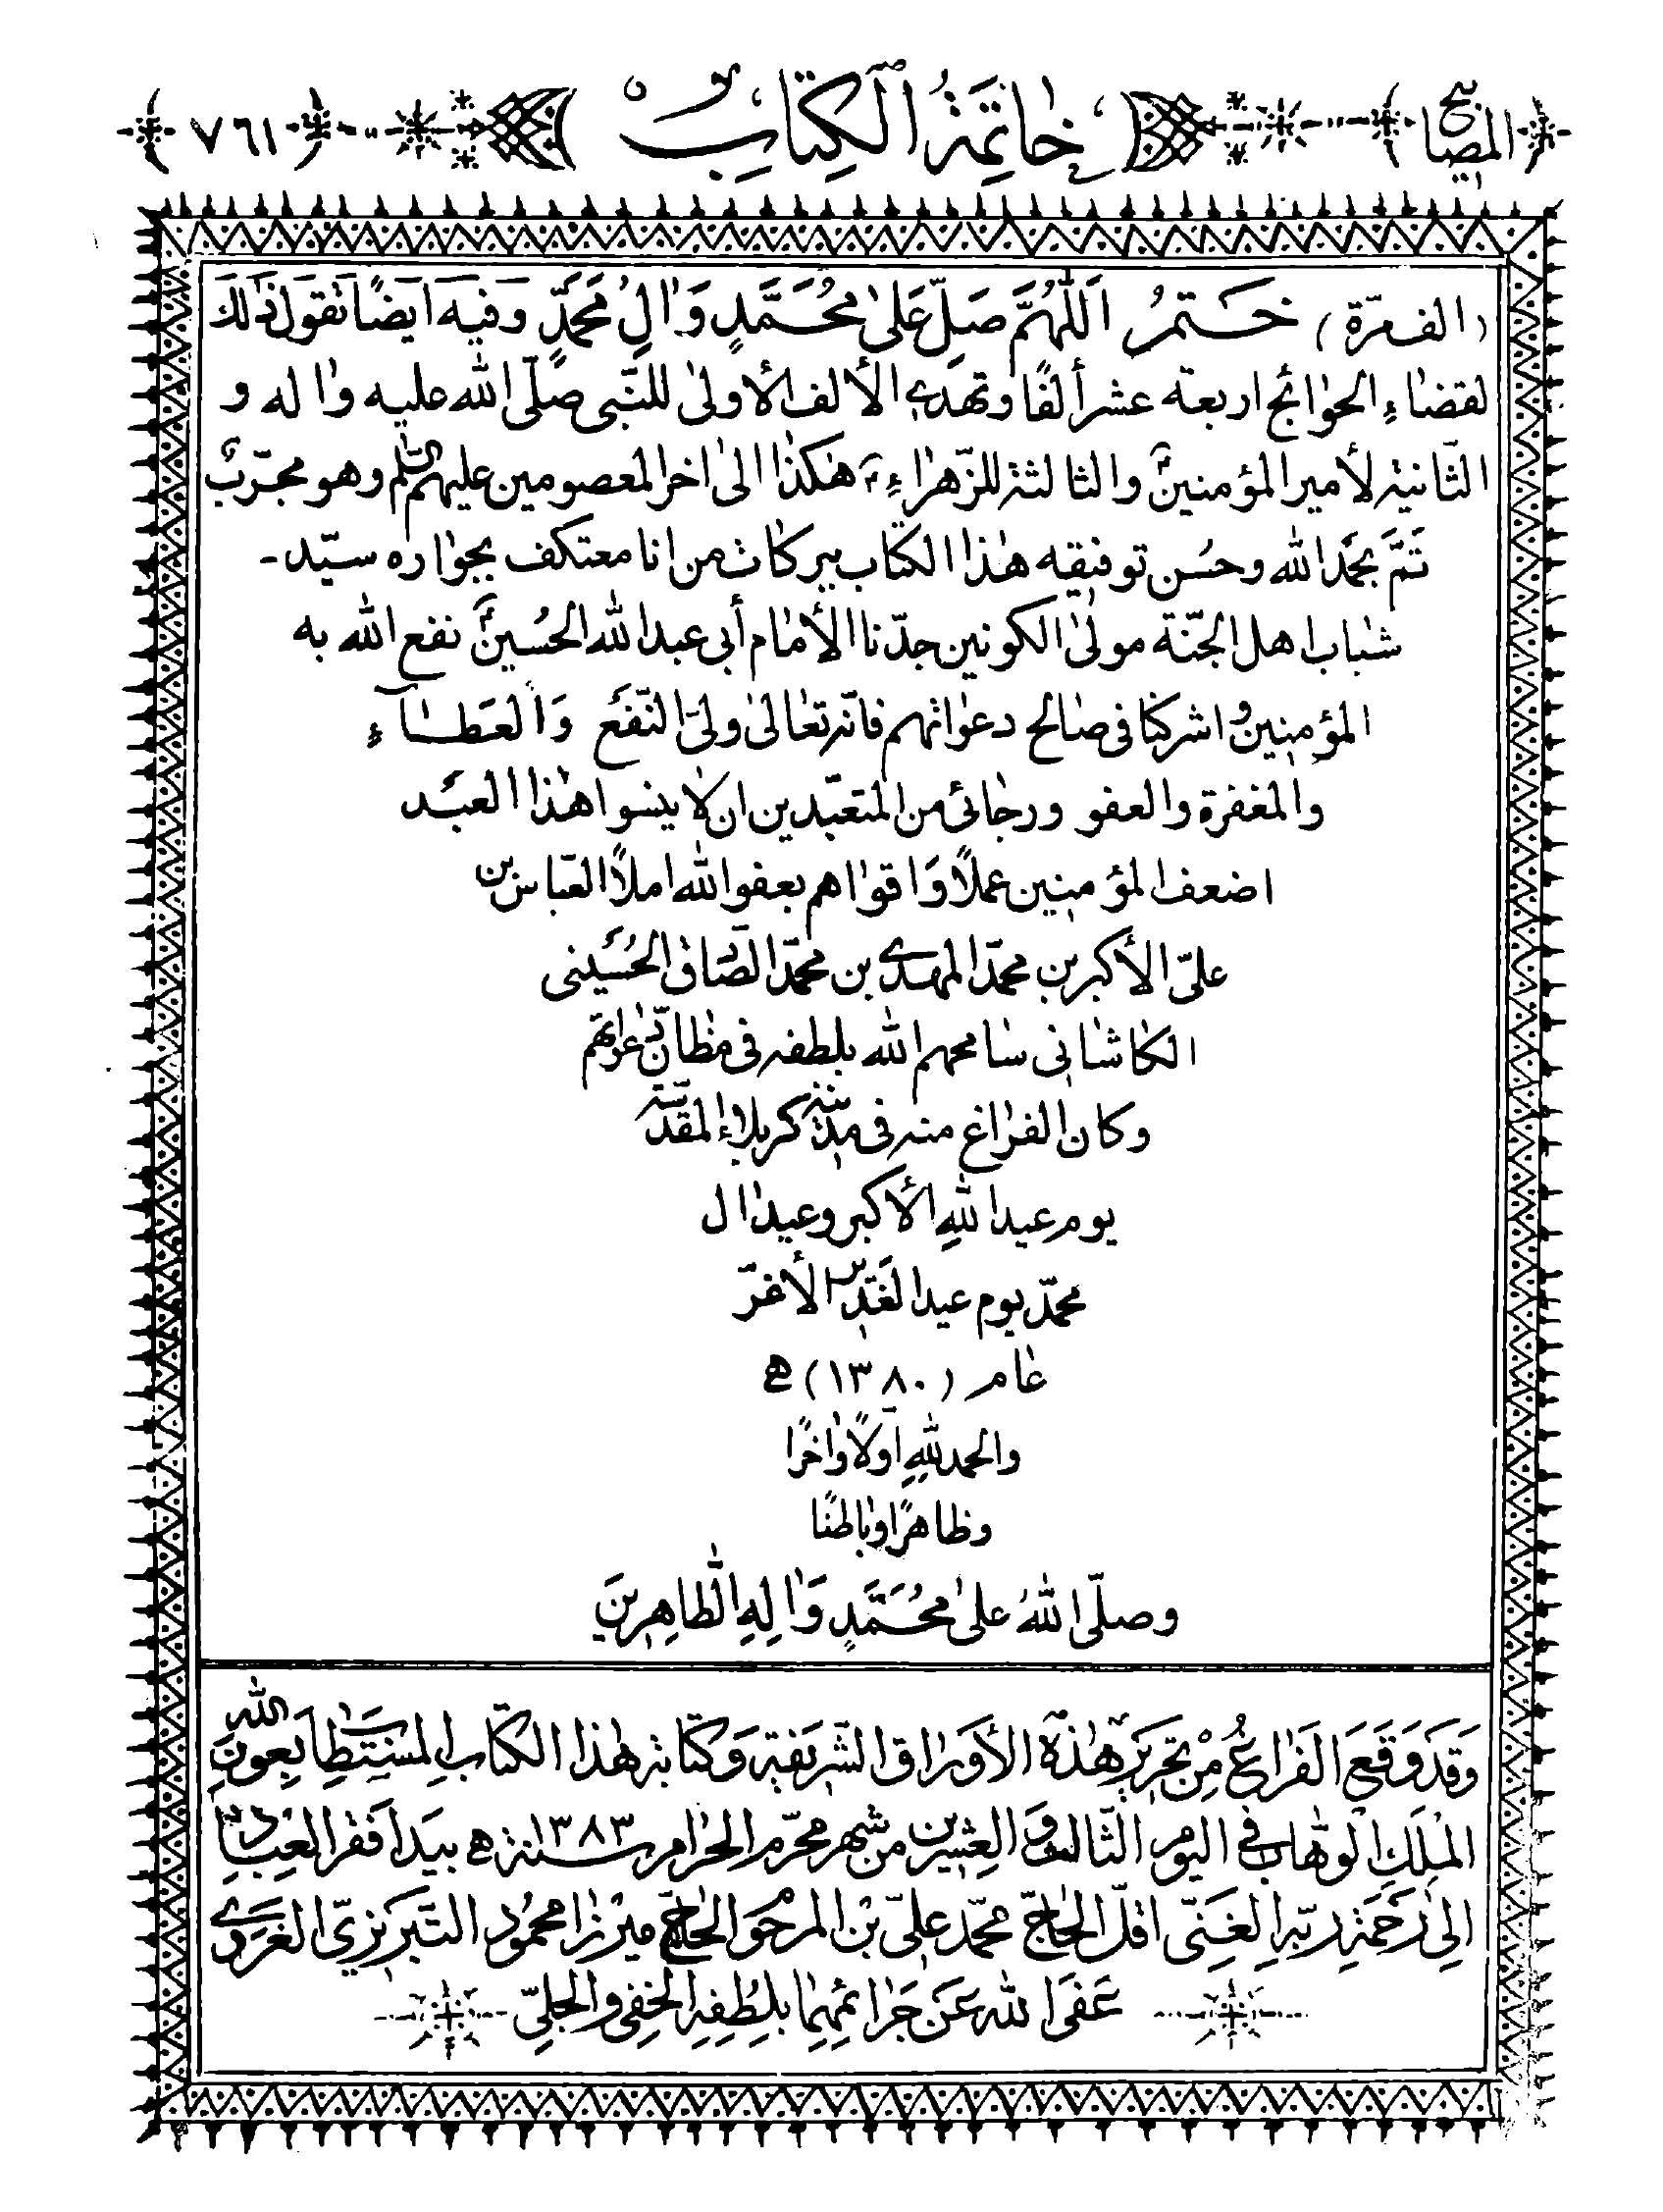 المصابيح
خاتمة الكتاب
٧٦١
(الف مرّة) ختم اَللّٰهُمَّ صَلِّ عَلىٰ مُحَمَّدٍ وَاٰلِ مُحَمَّدٍ وفيه ايضًا تقول ذٰلك
لقضاءِ الحوائج اربعة عشر ألفًا وتهدي الألف الأولىٰ للنّبى صلّى الله عليه واله و
الثّانية لأمير المؤمنينؑ والثالثة للزّهراءِؑ هٰكذا الىٰ اخر المعصومين عليهم السّلم وهو مجرّبٌ
تَمَّ بحمد الله وحُسن توفيقه هٰذا الكتاب ببركات من انا معتكف بجواره سيّد-
شباب اهل الجنّة مولىٰ الكونين جدّنا الأمام أبى عبد الله الحُسينؑ نفع الله به
المؤمنين واشركنا فى صالح دعواتهم فانّه تعالىٰ ولىّ النّفع وَالعَطاءِ
والمغفرة والعفو ورجائى من المتعبّدين ان لا ينسوا هٰذا العبد
اضعف المؤمنين عملًا وَاقواهم بعفو الله املًا العبّاس بن
علىّ الأكبر بن محمّد المهدي بن محمّد الصّادق الحُسينى
الكاشانى سامحهم الله بلطفه فى مظانّ عثراتهم
وكان الفراغ منه فى مدينة كربلاء المقدّسة
يوم عيد اللهِ الأكبر وعيد ال
محمّد يوم عيد الغَدير الأغرّ
عام (١٣٨٠) ه
والحمد للهِ اوّلًا واٰخرًا
وظاهرًا وباطنًا
وصلّى اللهُ علىٰ مُحَمَّدٍ وَاٰلِهِ الطّاهِرينَ
وَقَد وَقَعَ الفَراغُ مِنْ تحرير هٰذه الأوراق الشّريفة وَكتابة هٰذا الكتابِ المستطاب بِعونِ الله
المَلِكِ الوَهّاب فى اليوم الثّالث وَ العِشرين من شهر محرّم الحرام سنة ١٣٨٣ه بيد افقر العِباد
اِلىٰ رَحمَةِ ربّهِ الغَنِىّ اقلّ الحاجّ محمّد علىّ بْن المرْحوم الحاجّ ميرْزا محمُود التّبريزىّ الغروي
عَفَى الله عَن جَرائمِهما بلُطفِهِ الخفى والجلىّ